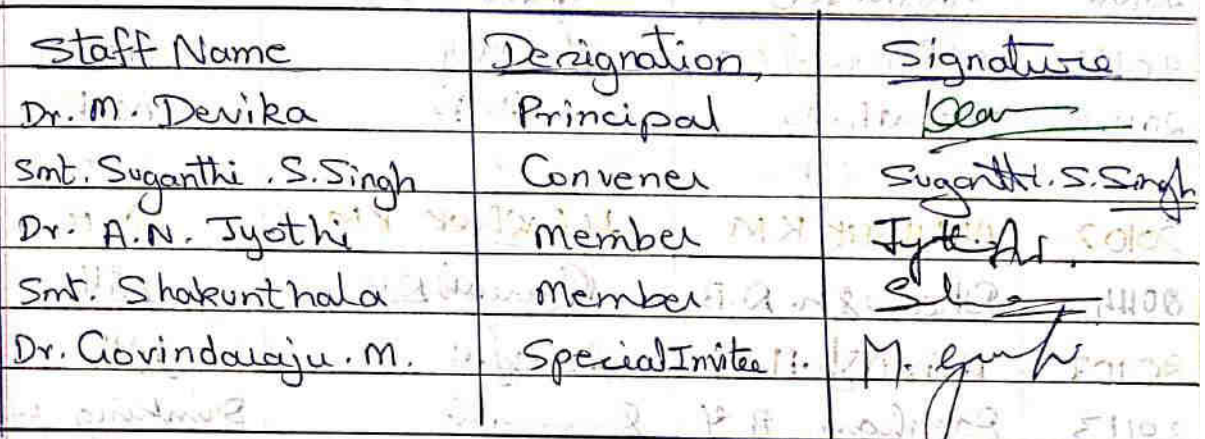 Staff Name Designation, Signature
Dr. M. Devika Principal
Smt. Suganthi . S. Singh Convener Suganthi. S. Singh
Dr. A.N. Jyothi member
Smt. Shakunthala member
Dr. Govindaraju . M. Special Invitee . M.